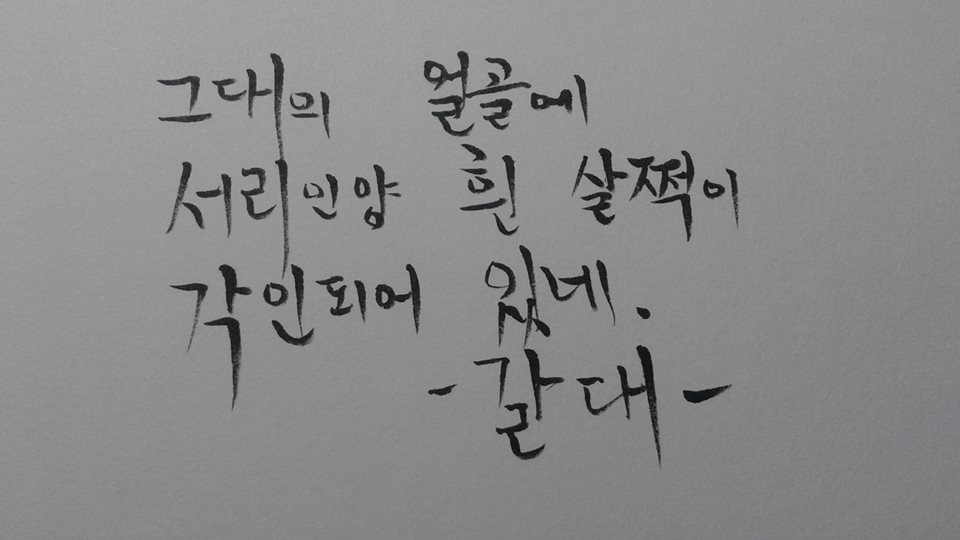 그대의 얼골에
서리인양 흰 살쩍이
각인되어 있네.
-갈대-